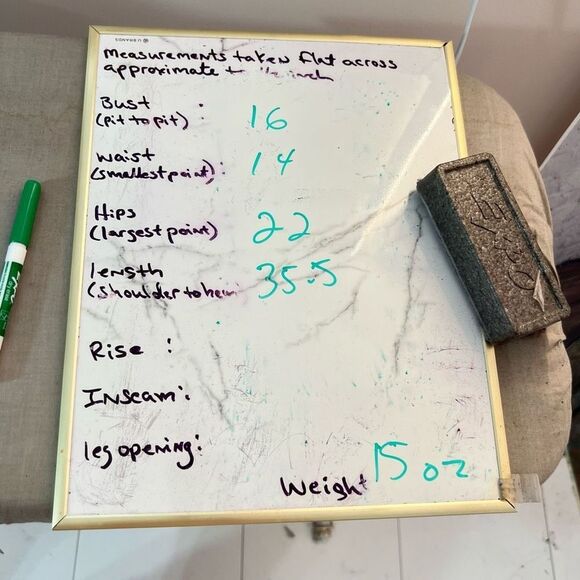 U BRANDS
Measurements taken flat across
approximate to inch
Bust :
(pit to pit) : 16
waist
(smallest point) : 14
Hips
(largest point) 22
length
(shoulder to hem 35.5
Rise :
Inseam :
leg opening :
15 oz
Weight
Expo